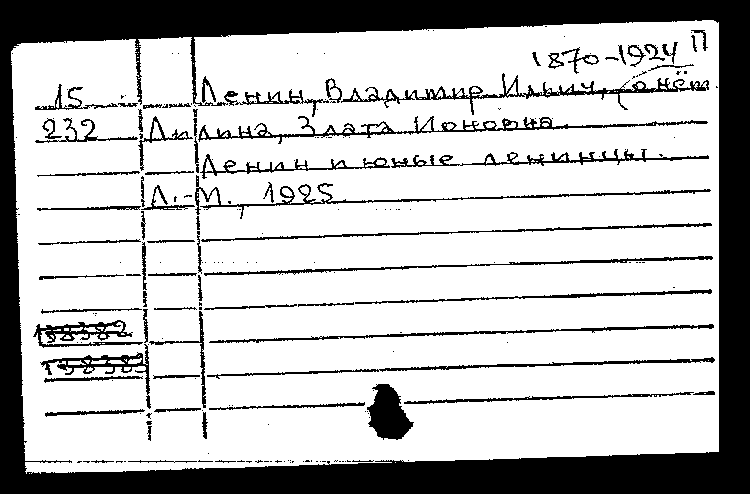 1870-1924 П
15 Ленин, Владимир Ильич, (о нём
232 Лилина, Злата Ионовна.
Ленин и юные ленинцы.
Л.-М., 1925.
138382
138383